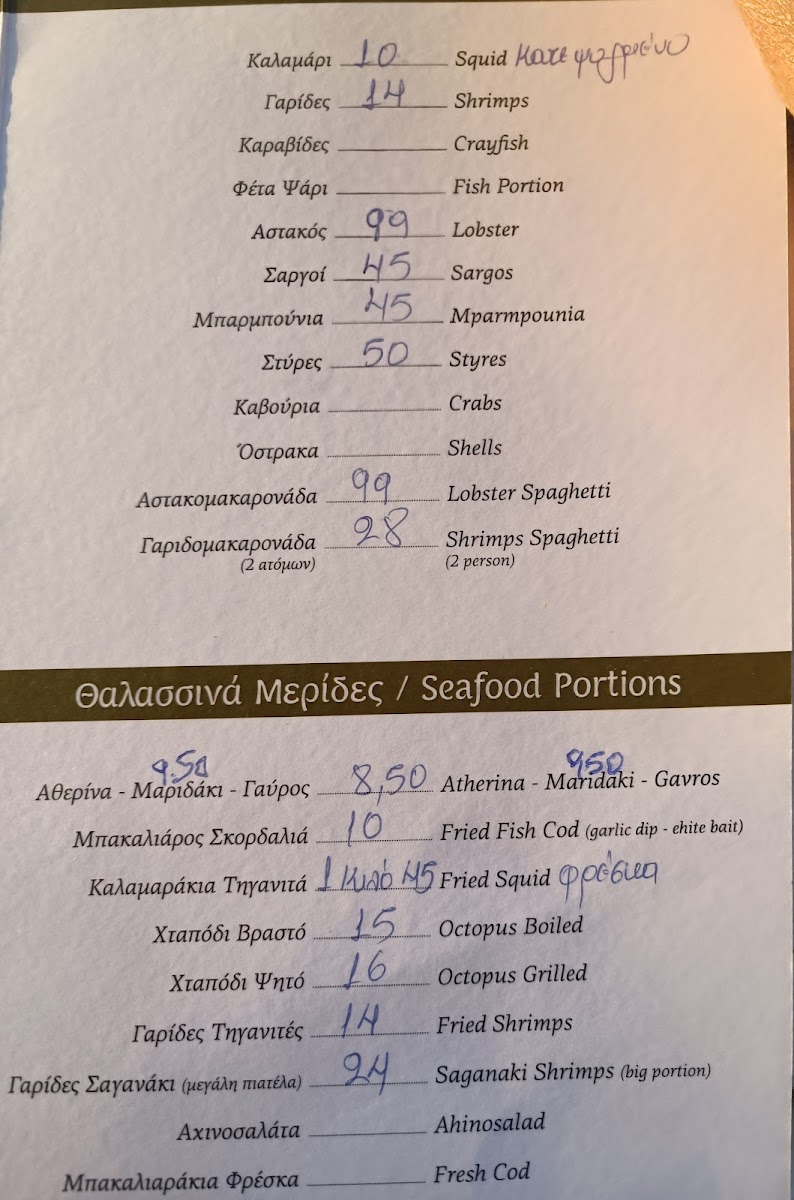 Καλαμάρι 10 Squid κατεψυγμένο
Γαρίδες 14 Shrimps
Καραβίδες Crayfish
Φέτα Ψάρι Fish Portion
Αστακός 99 Lobster
Σαργοί 45 Sargos
Μπαρμπούνια 45 Mparmpounia
Στύρες 50 Styres
Καβούρια Crabs
Όστρακα Shells
Αστακομακαρονάδα 99 Lobster Spaghetti
Γαριδομακαρονάδα 28 Shrimps Spaghetti
(2 ατόμων) (2 person)
Θαλασσινά Μερίδες / Seafood Portions
9.50 950
Αθερίνα - Μαριδάκι - Γαύρος 8,50 Atherina - Maridaki - Gavros
Μπακαλιάρος Σκορδαλιά 10 Fried Fish Cod (garlic dip - ehite bait)
Καλαμαράκια Τηγανιτά 1 κιλό 45 Fried Squid φρέσκα
Χταπόδι Βραστό 15 Octopus Boiled
Χταπόδι Ψητό 16 Octopus Grilled
Γαρίδες Τηγανιτές 14 Fried Shrimps
Γαρίδες Σαγανάκι (μεγάλη πιατέλα) 24 Saganaki Shrimps (big portion)
Αχινοσαλάτα Ahinosalad
Μπακαλιαράκια Φρέσκα Fresh Cod